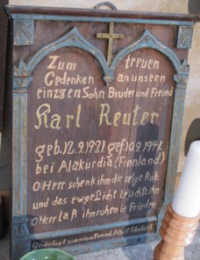 Zum treuen
Gedenken an unsern
einzgen Sohn Bruder und Freund
Karl Reuter
geb. 12.9.1921 gef. 10.9.1941
bei Alakurdia (Finnland)
O Herr schenk ihm die ewige Ruh
und das ewge Licht leuchte ihm
O Herr laß ihn ruhen in Frieden